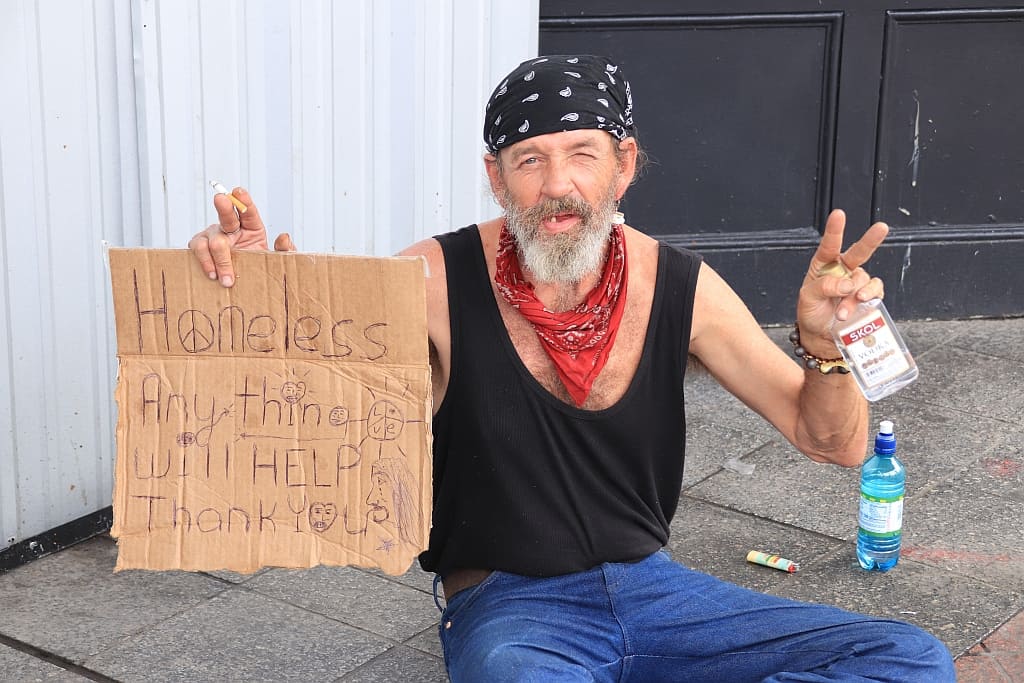 Homeless
Anything
Will HELP
Thank You
SKOL
VODKA